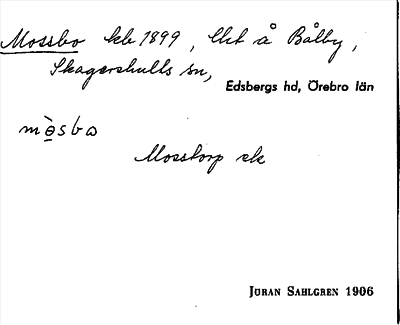 Mossbo kb 1899, lht å Bålby,
Skagershults sn,
Edsbergs hd, Örebro län
mòsbo
Mosstorp ek
JÖRAN SAHLGREN 1906